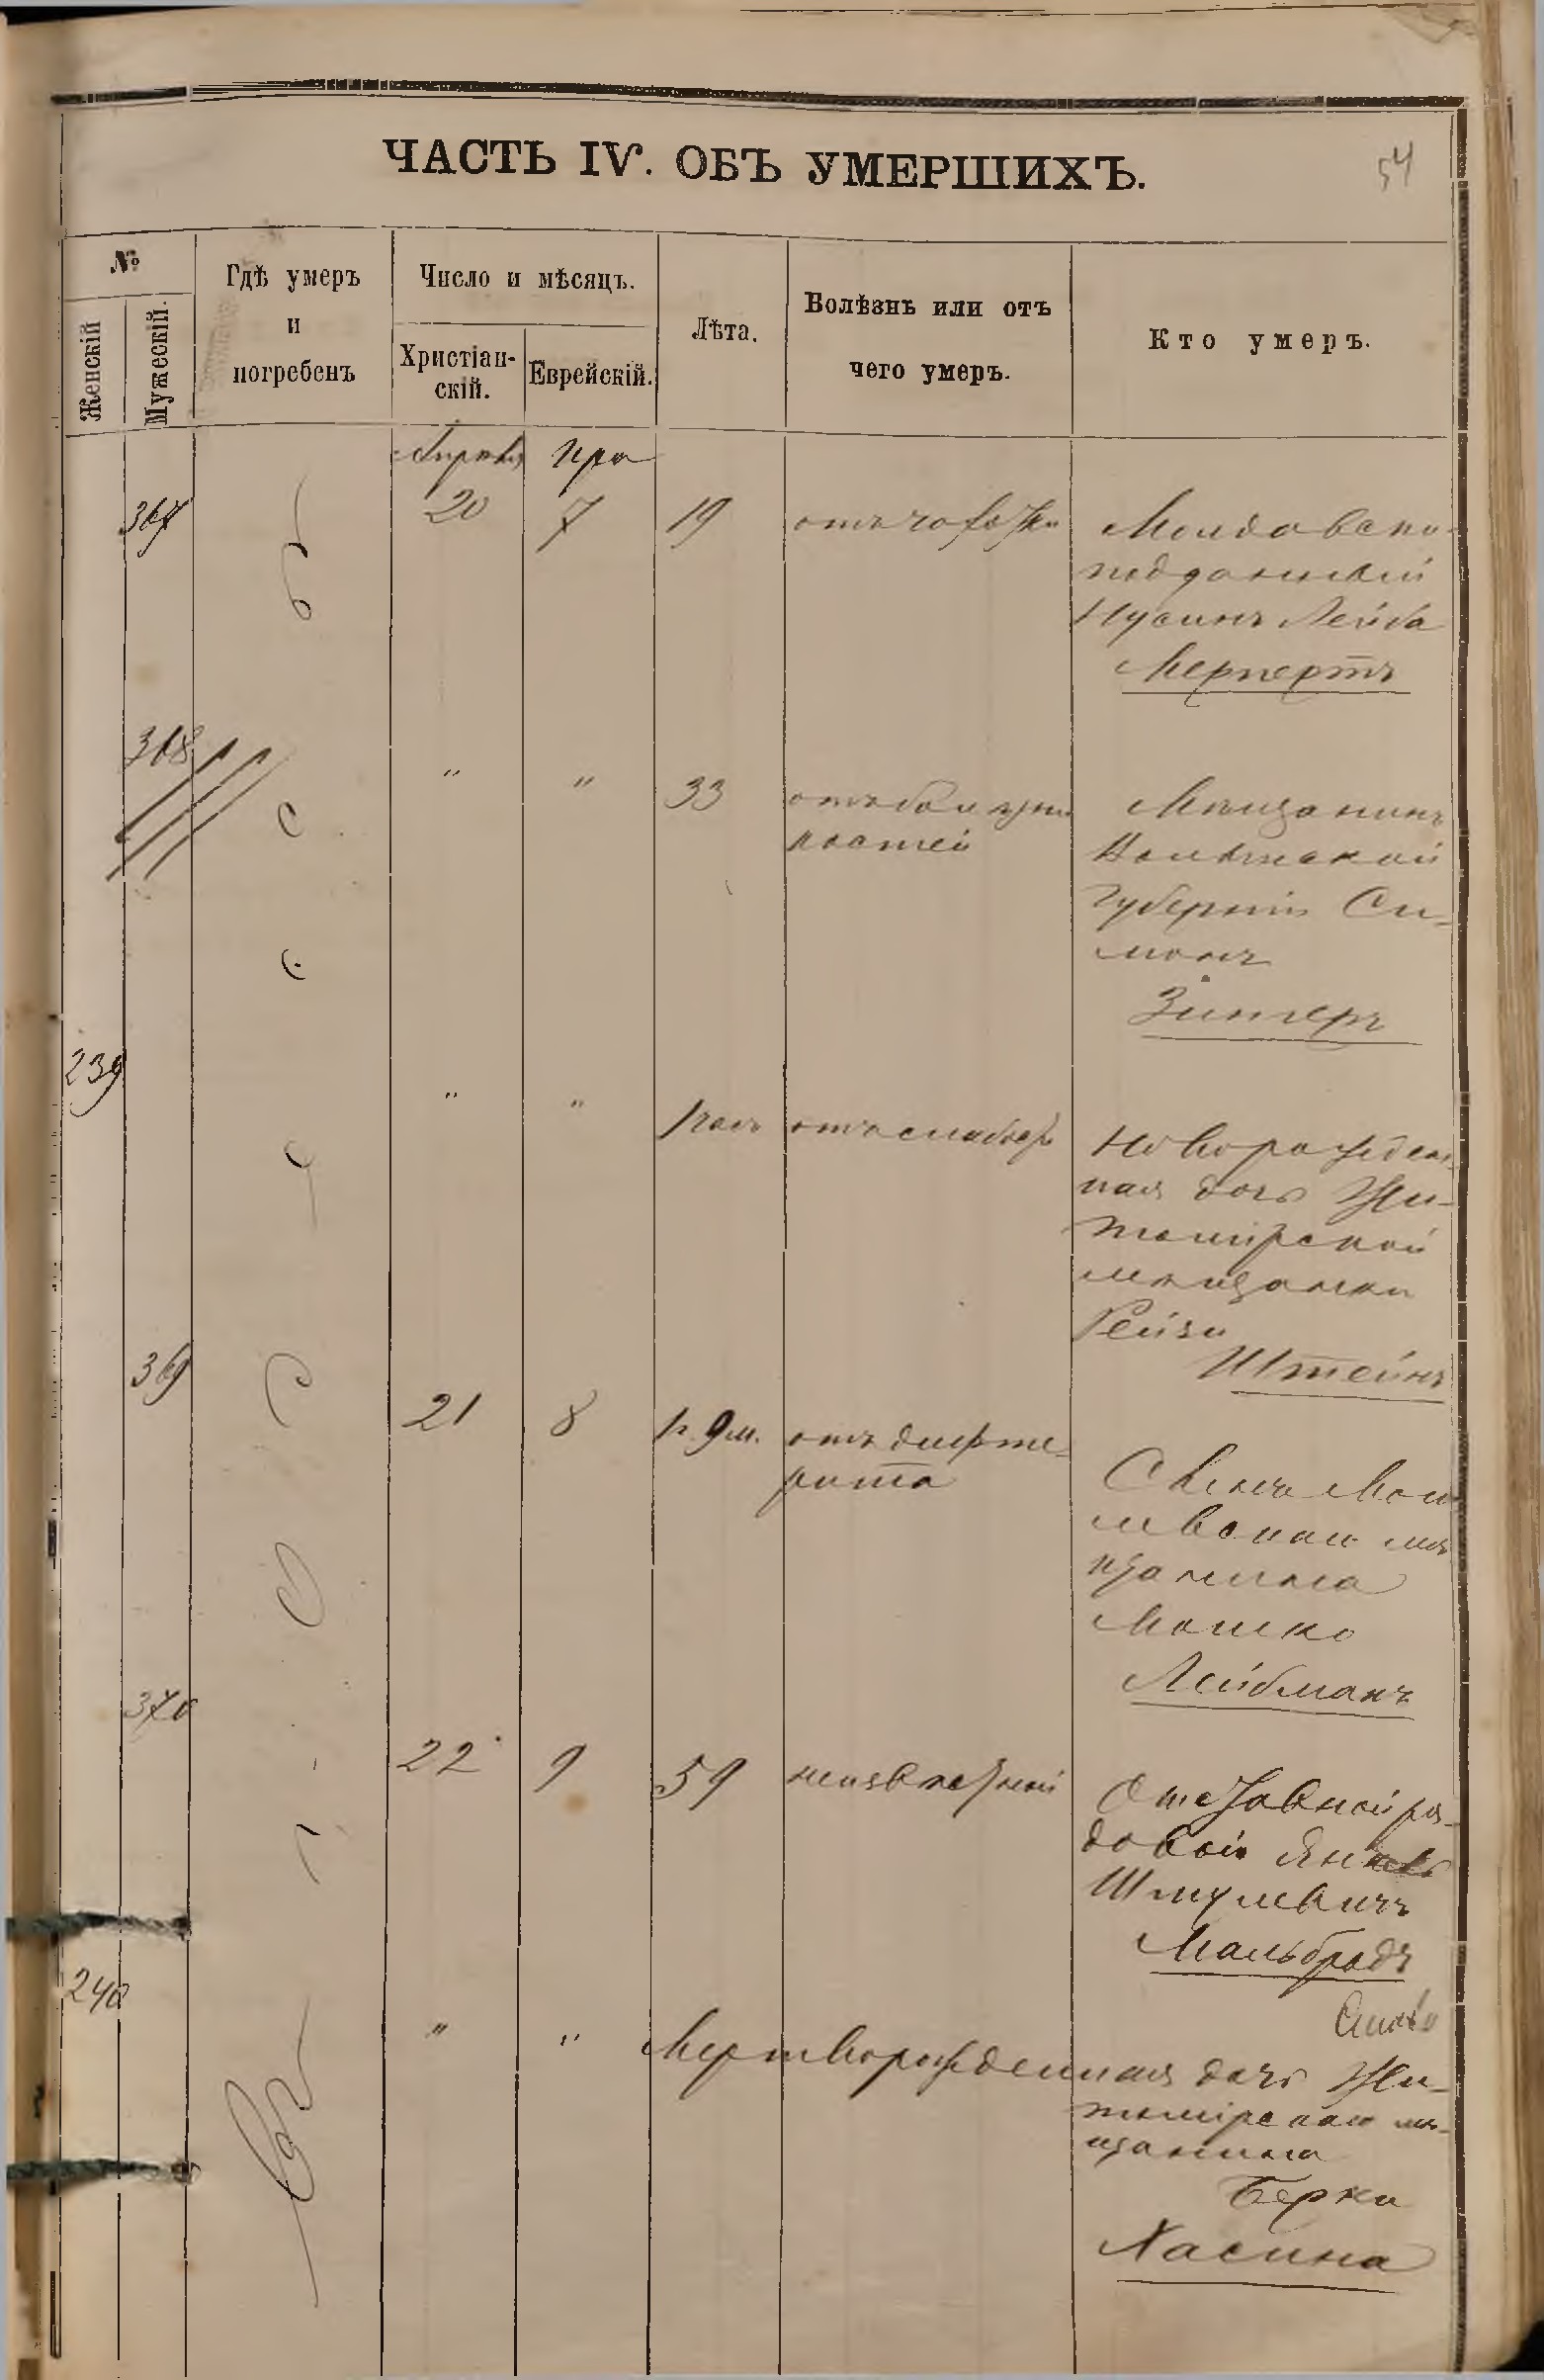 ЧАСТЬ IV. ОБЪ УМЕРШИХЪ.
54
№
Женскій
Мужескій.
Гдѣ умеръ
и
погребенъ
Число и мѣсяцъ.
Христіан-
скій.
Еврейскій.
Лѣта.
Болѣзнь или отъ
чего умеръ.
Кто умеръ.
Апрѣля Иръ
367 20 7 19 отъ чахотки
Молдавско-
подданный
Нусинъ Лейба
Мерпертъ
368 " " 33 отъ болѣзни
костей
Мѣщанинъ
Волынской
губерніи Си-
монъ
Зингеръ
239 " " 1 часъ отъ слабос
Новорожден-
ная дочь Жи-
томірской
мѣщанки
Рейзи
Штейнъ
369 21 8 1 г. 9 м. отъ дифте-
рита
Сынъ
мѣ
щанина
Мошко
Лейбманъ
370 22 9 59 неизвѣстной
Отставной ря-
довой Янкель
Шмулевичъ
Мальбродъ
240 " " Мертворожденная дочь Жи-
томірскаго мѣ-
щанина
Берки
Хасина